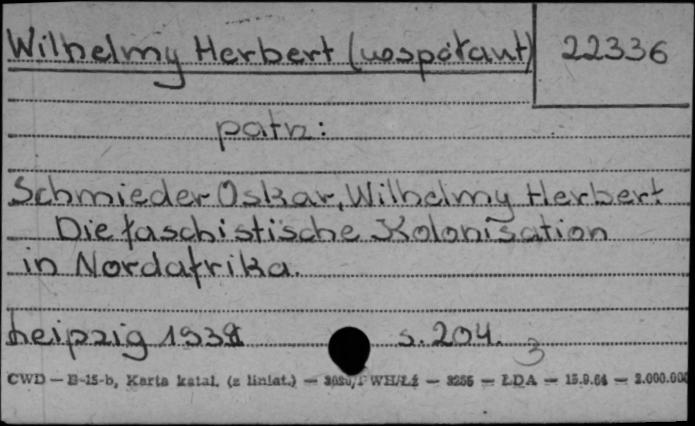 Wilhelmy Herbert (współaut)
22336
patrz:
Schmieder Oskar, Wilhelmy Herbert
Die faschistische Kolonisation
in Nordafrika.
Leipzig 1939 s. 204.
3
CWD — B-15-b, Karta katal. (z liniat.) — WH/Łź — 3256 — ŁDA — 15.9.64 — 2.000.000